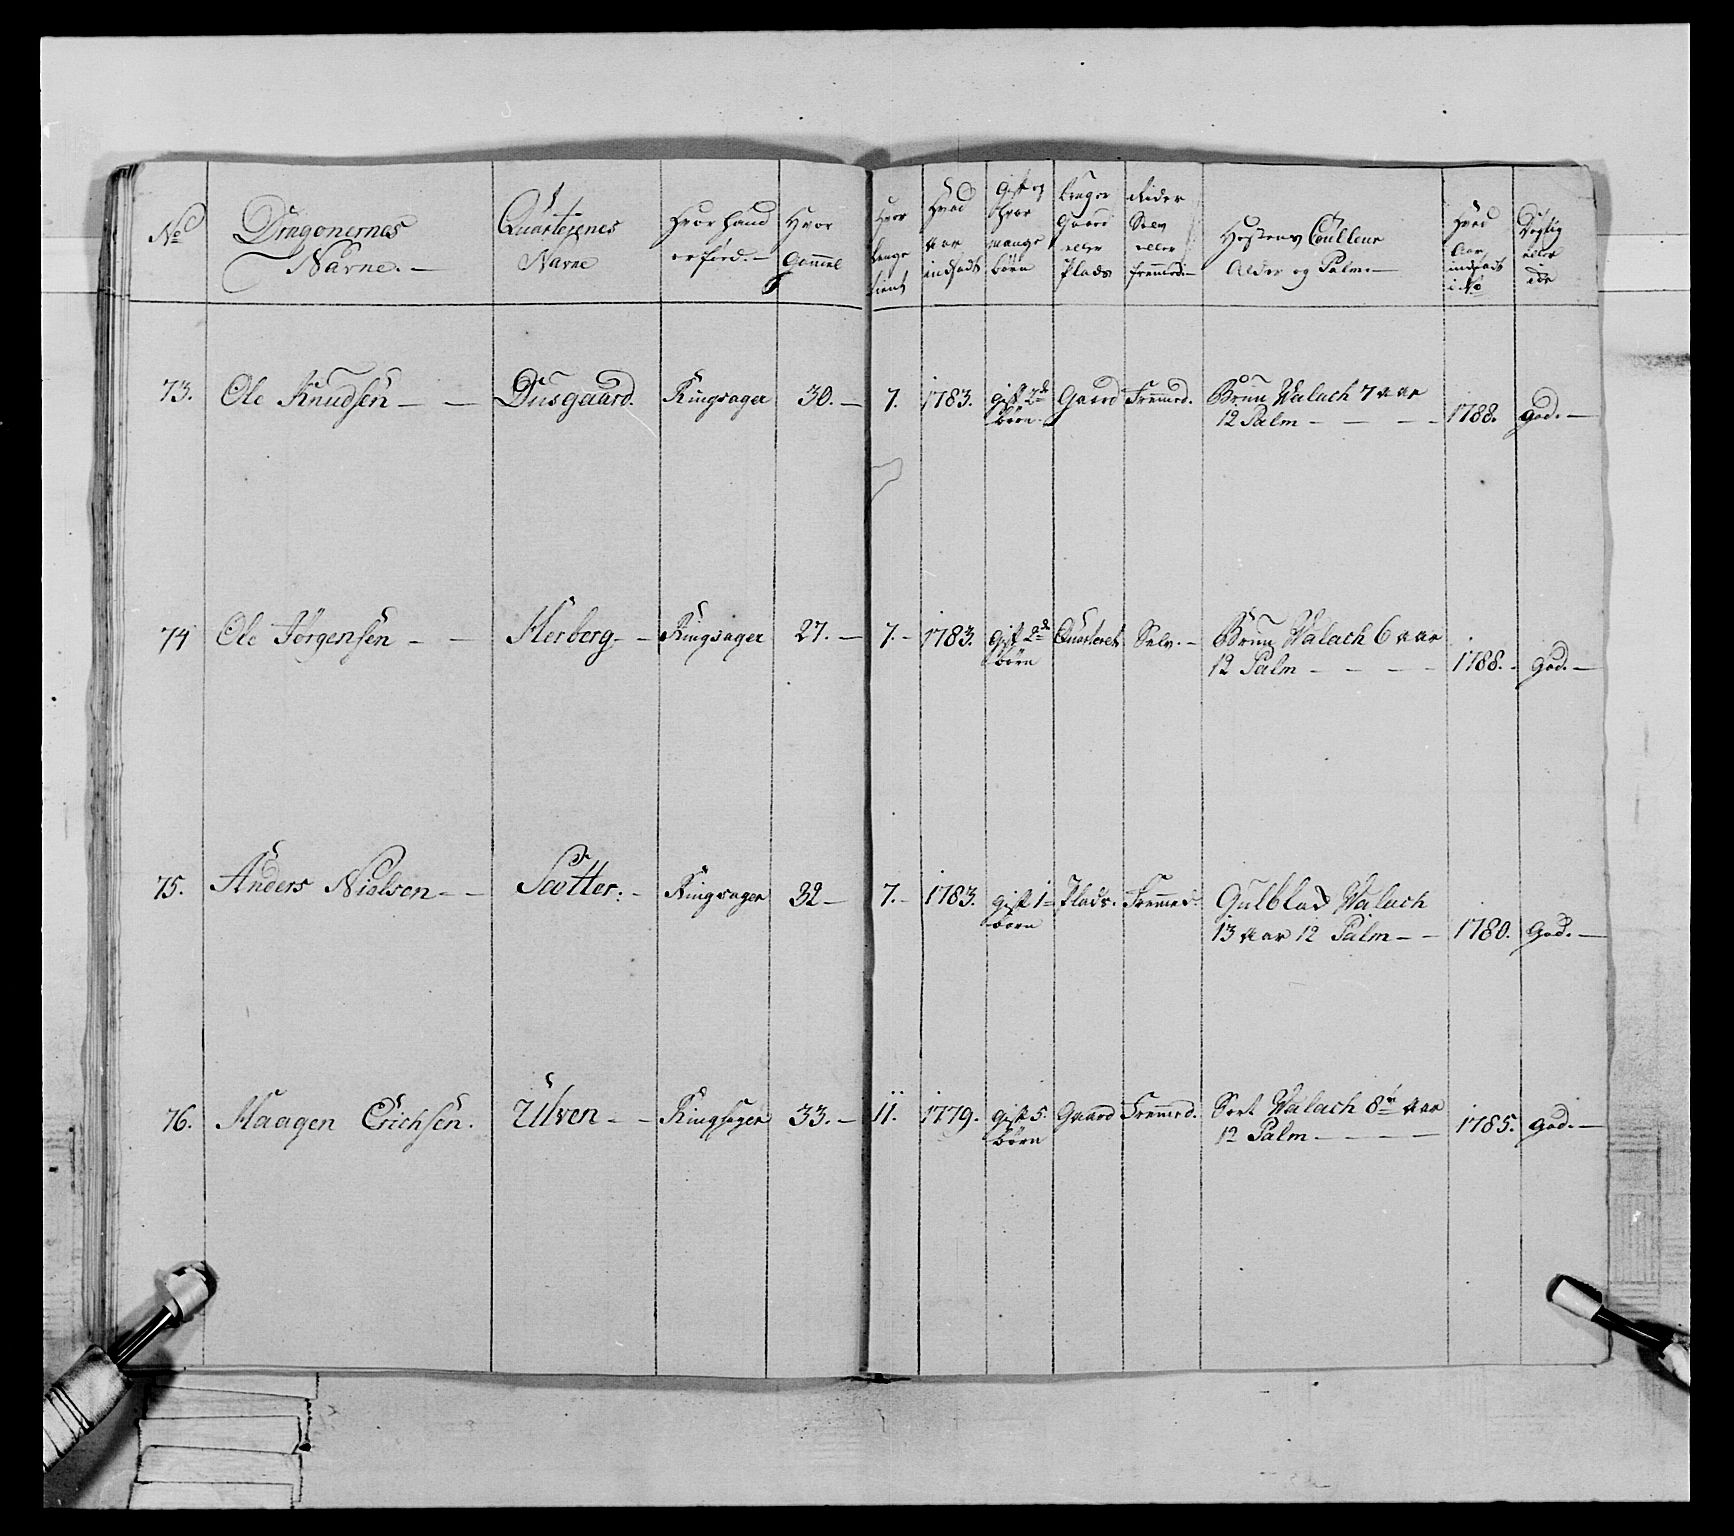 No | Dragonernes Navne. | Quarterenes Navne | Hvor hand er fød. | Hvor Gammel | Hvor lenge tient | Hvad aar indsadt | Gift og hvor mange børn | Bruger Gaard eller Plads | Rider Selv eller fremmed. | Hestens Coulleur Alder og Palm. | Hvad Aar indsadt i No | Dygtig eller Ei
73. Ole Knudsen — — Dusgaard. Ringsager 30. — 7. 1783. gift 2de Gaard Fremmed. Brun Walach 7 aar
børn 12 Palm — — — 1788. god. —
74 Ole Jørgensen — — Herberg. — Ringsager 27. — 7. — 1783. gift 2de Quarteret Selv. — Brun Walach 6 aar
børn 12 Palm — — — 1788. — god. —
75. Anders Nielsen — — Sætter. — Ringsager 32 — 7. — 1783. gift 1 Plads. Fremmed. Gulblad Walach
børn 13 aar 12 Palm — — 1780. god. —
76. Haagen Erichsen. Ulven — — Ringsager 33. — 11. 1779. gift 5 Gaard Fremmed. Sort Walach 8te aar
børn 12 Palm — — — 1785. god. —